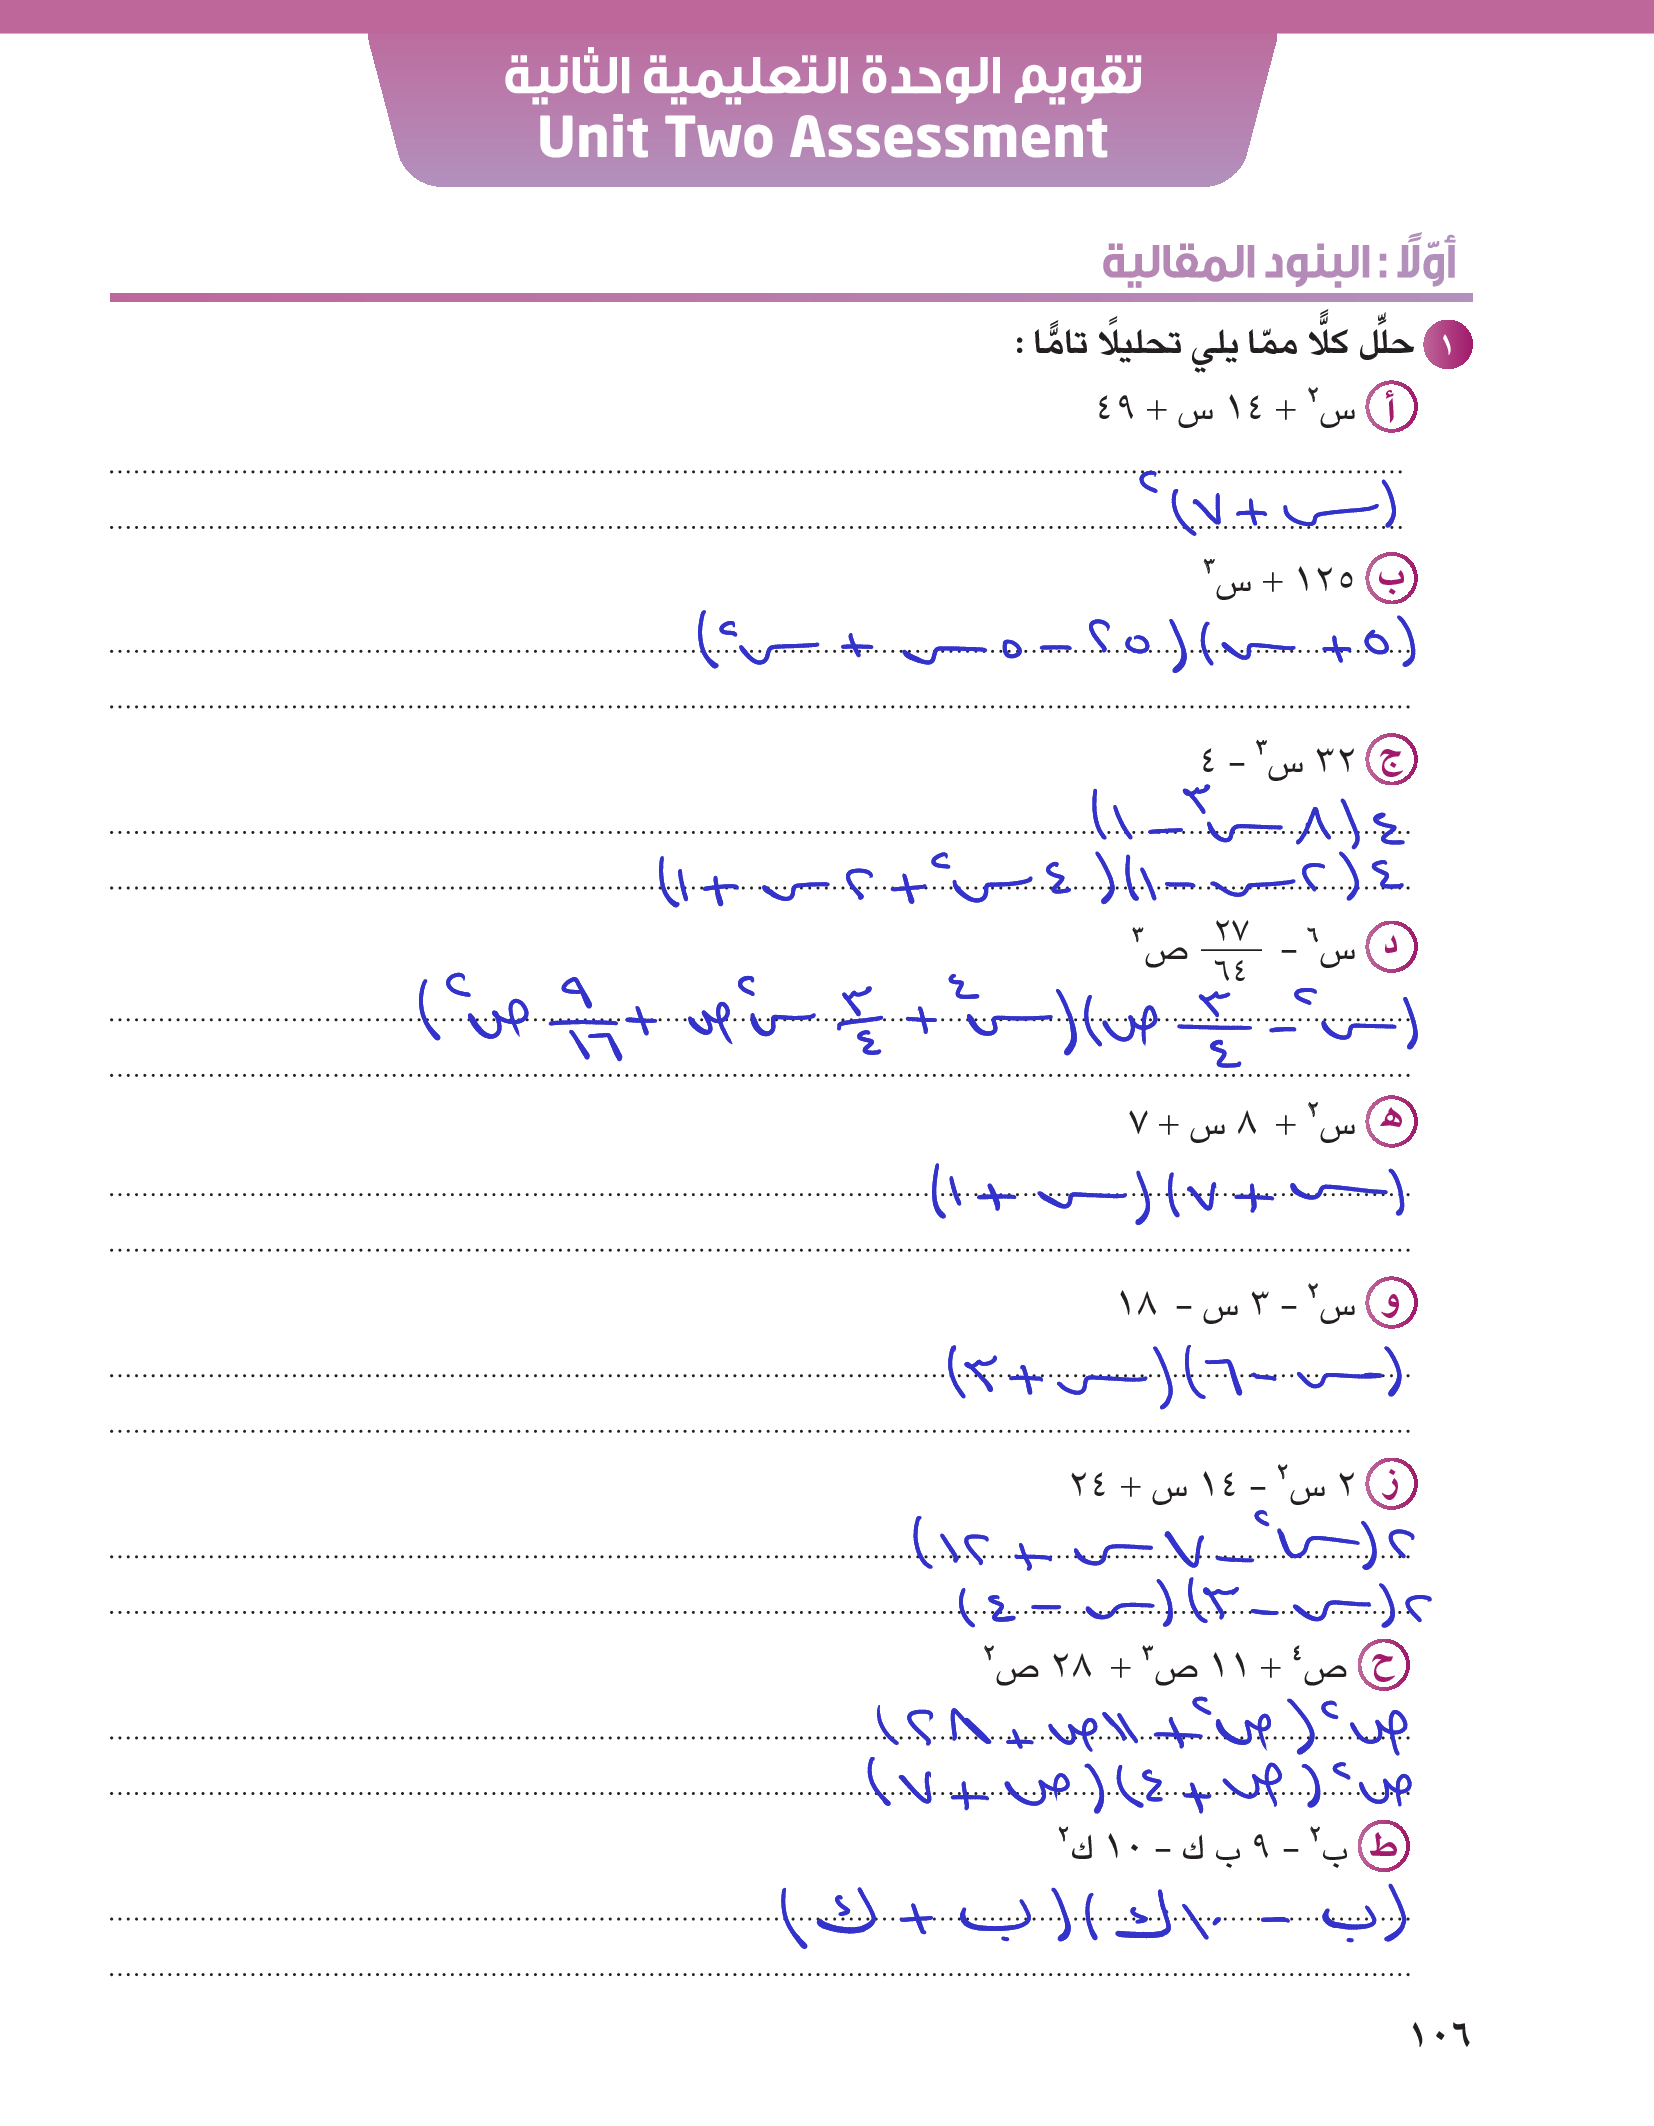 تقويم الوحدة التعليمية الثانية
Unit Two Assessment
أوّلًا : البنود المقالية
١ حلِّل كلًّا ممّا يلي تحليلًا تامًّا :
أ س² + ١٤ س + ٤٩
(س + ٧)²
ب ١٢٥ + س³
(٥ + س)(٢٥ - ٥ س + س²)
ج ٣٢ س³ - ٤
٤ (٨ س³ - ١)
٤ (٢ س - ١)(٤ س² + ٢ س + ١)
د س⁶ - ٢٧/٦٤ ص³
(س² - ٣/٤ ص)(س⁴ + ٣/٤ س² ص + ٩/١٦ ص²)
ه س² + ٨ س + ٧
(س + ٧)(س + ١)
و س² - ٣ س - ١٨
(س - ٦)(س + ٣)
ز ٢ س² - ١٤ س + ٢٤
٢ (س² - ٧ س + ١٢)
٢ (س - ٣)(س - ٤)
ح ص⁴ + ١١ ص³ + ٢٨ ص²
ص² (ص² + ١١ ص + ٢٨)
ص² (ص + ٤)(ص + ٧)
ط ب² - ٩ ب ك - ١٠ ك²
(ب - ١٠ ك)(ب + ك)
١٠٦